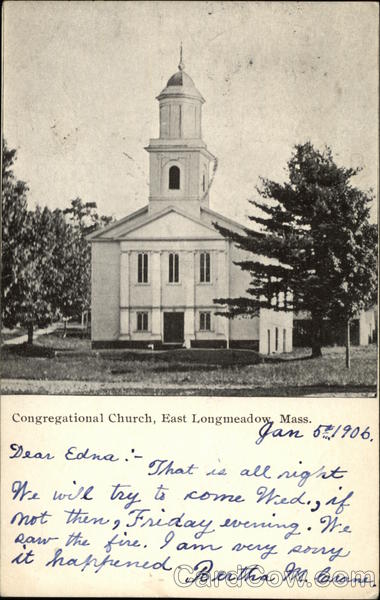 Congregational Church, East Longmeadow, Mass.
Jan 5th 1906.
Dear Edna:-
That is all right
We will try to come Wed., if
not then, Friday evening. We
saw the fire. I am very sorry
it happened.
Bertha M.
CardCow.com